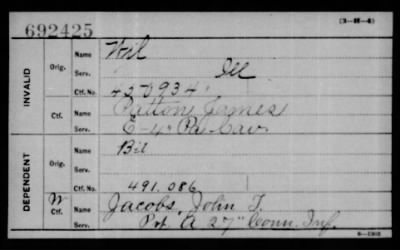 692425
(3-
INVALID
Orig.
Name
Wil
Serv.
Ill
Ctf. No.
420934
Ctf.
Name
Patton James
Serv.
E-4" Pa Cav
DEPENDENT
Orig.
Name
Bil
Serv.
Ctf. No.
491.086
W
Ctf.
Name
Jacobs, John T.
Serv.
Pvt. A 27" Conn. Inf.